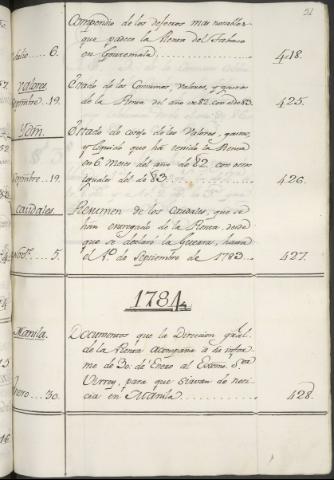 51
Compendio de los defectos mas notables
que padece la Renta del Tabaco
Julio..... 6. en Goatemala; 418.
Valores Estado de los Consumos, Valores, y gastos
19. de la Renta del año de 82. con el de 83. 425.
Ydm. Estado de cotejo de los Valores, gastos,
y liquido que ha tenido la Renta
en 6. Meses del año de 82. con otros
19. iguales del de 83. 426.
Caudales Resumen de los Caudales, que se
han entregado de la Renta, desde
que se declaró la Guerra, hasta
5. el 1º. de Septiembre de 1783. 427.
1784
Manila. Documentos que la Direccion gral.
de la Renta acompaña á su Ynfor-
me de 30. de Enero al Exmo. Sor.
Virrey, para que sirvan de noti-
Enero... 30. cia en Manila 428.